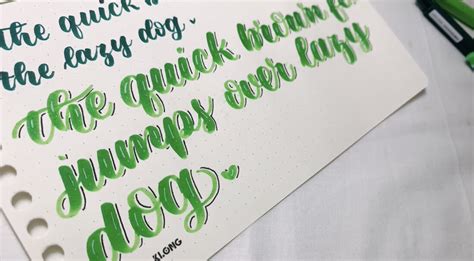 the quick
the lazy dog.
the quick brown
jumps over lazy
dog.